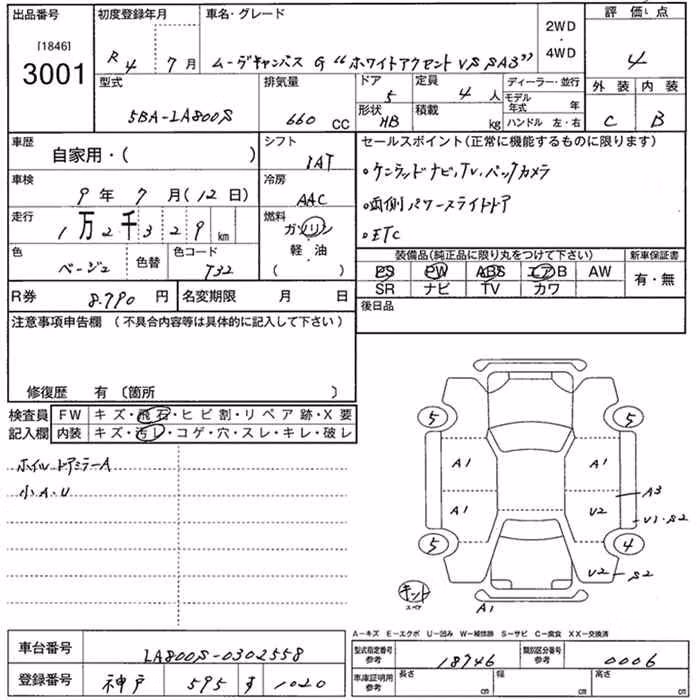 出品番号 初度登録年月 車名・グレード 2WD・4WD 評価点
[1846] 3001 R4年 7月 ムーヴキャンバス G "ホワイトアクセントVS SA3" 4
型式 排気量 ドア 5 定員 4人 ディーラー・並行 外装 内装
5BA-LA800S 660 CC 形状 HB 積載 kg モデル年式 年 ハンドル 左・右 C B
車歴 シフト セールスポイント(正常に機能するものに限ります)
自家用・( ) IAT
・ケンウッドナビ,TV,バックカメラ
車検 9年 7月(12日) 冷房 AAC
・両側パワースライドドア
走行 1万2千329km 燃料 ガソリン
・ETC
色 色替 色コード 軽・油
ベージュ T32 ( )
装備品(純正品に限り丸をつけて下さい) 新車保証書
PS PW ABS エアB AW 有・無
SR ナビ TV カワ
R券 8.790円 名変期限 月 日 後日品
注意事項申告欄 (不具合内容等は具体的に記入して下さい)
修復歴 有 〔箇所 〕
検査員 FW キズ・飛石・ヒビ割・リペア跡・X要
記入欄 内装 キズ・汚レ・コゲ・穴・スレ・キレ・破レ
ホイル ドアミラーA
小A・U
5 5
A1 A1
A3
A1 U2
U1・S2
5 4
U2 S2
キット スペア
A1
A-キズ E-エクボ U-凹み W-補修跡 S-サビ C-腐食 XX-交換済
車台番号 LA800S-0302558 型式指定番号 参考 18746 類別区分番号 参考 0006
登録番号 神戸 595 す 1020 車庫証明用 参考 長さ cm 幅 cm 高さ cm